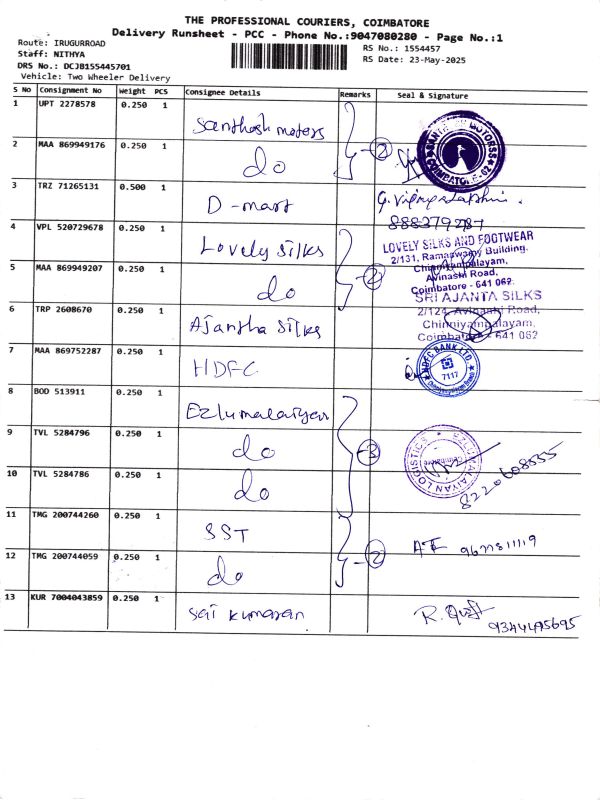 THE PROFESSIONAL COURIERS, COIMBATORE
Delivery Runsheet - PCC - Phone No.:9047080280 - Page No.:1
Route: IRUGURROAD
Staff: NITHYA
DRS No.: DCJB155445701
Vehicle: Two Wheeler Delivery
RS No.: 1554457
RS Date: 23-May-2025
S No Consignment No Weight PCS Consignee Details Remarks Seal & Signature
1 UPT 2278578 0.250 1 Santhosh motors
2 MAA 869949176 0.250 1 do 2
SANTHOSH MOTORS
COIMBATORE-02
3 TRZ 71265131 0.500 1 D-mart
888379287
4 VPL 520729678 0.250 1 Lovely Silks
5 MAA 869949207 0.250 1 do 2
LOVELY SILKS AND FOOTWEAR
2/131, Ramaswamy Building,
Chinniyampalayam,
Avinashi Road,
Coimbatore - 641 062.
6 TRP 2608670 0.250 1 Ajantha Silks
SRI AJANTA SILKS
2/124, Avinashi Road,
Chinniyampalayam,
Coimbatore - 641 062
7 MAA 869752287 0.250 1 HDFC
HDFC BANK LTD.
7117
8 BOD 513911 0.250 1 Ezlumalaiyan
9 TVL 5284796 0.250 1 do 3
10 TVL 5284786 0.250 1 do
EZLUMALAIYAN LOGISTICS
8220608555
11 TMG 200744260 0.250 1 SST
12 TMG 200744059 0.250 1 do 2
9677811119
13 KUR 7004043859 0.250 1 Sai Kumaran
R.
9344495695